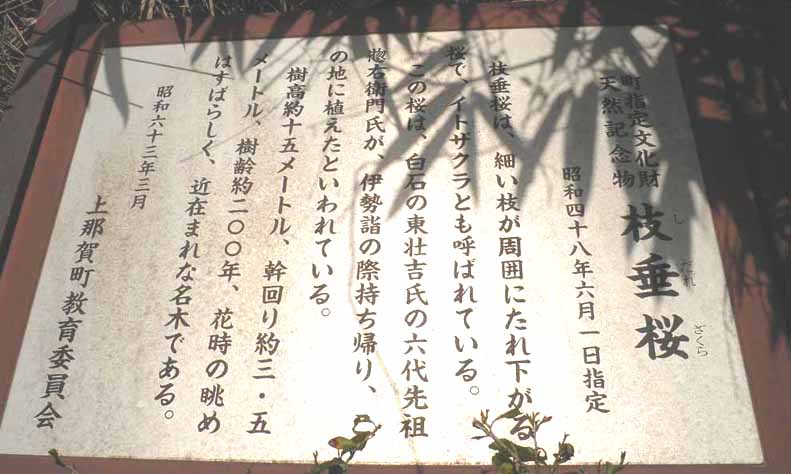 町指定文化財
天然記念物
枝垂桜
し だれ ざくら
昭和四十八年六月一日指定
枝垂桜は、細い枝が周囲にたれ下がる
桜で、イトザクラとも呼ばれている。
この桜は、白石の東壮吉氏の六代先祖
惣右衛門氏が、伊勢詣の際持ち帰り、こ
の地に植えたといわれている。
樹高約十五メートル、幹回り約三・五
メートル、樹齢約二〇〇年、花時の眺め
はすばらしく、近在まれな名木である。
昭和六十三年三月
上那賀町教育委員会